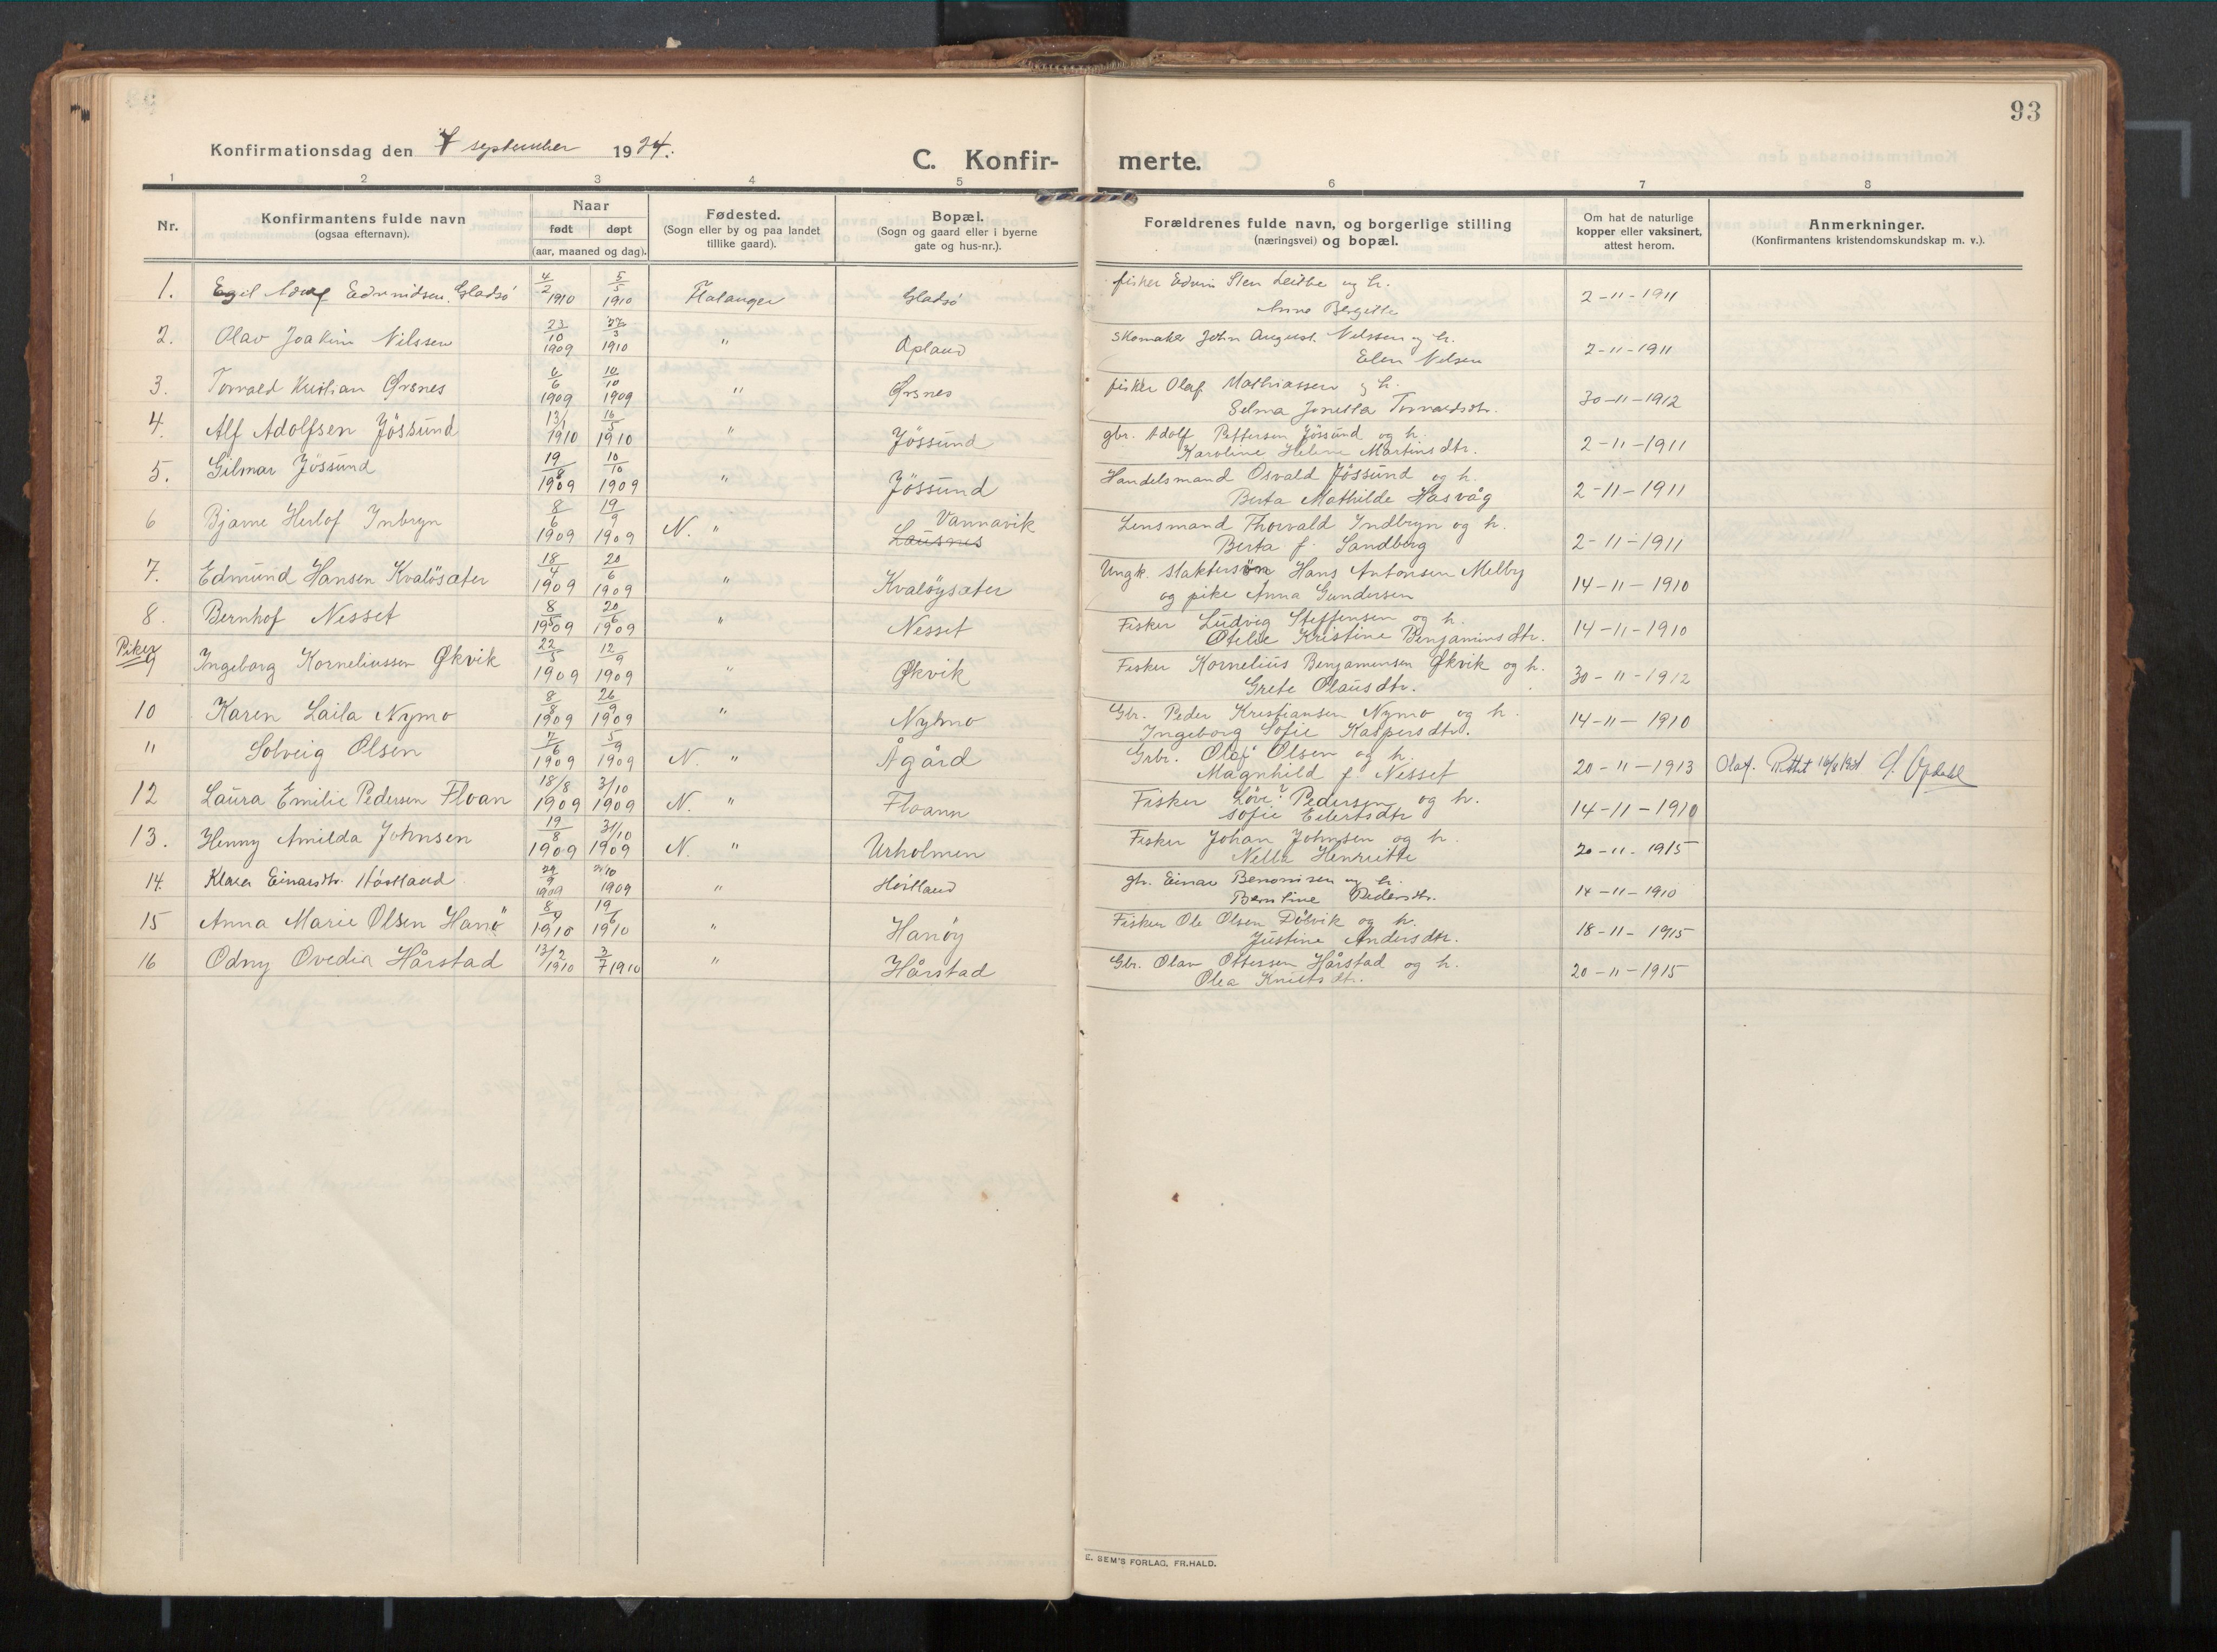 93
Konfirmationsdag den 7 september 1924.
C. Konfir- merte.
1 2 3 4 5 6 7 8
Nr.
Konfirmantens fulde navn
(ogsaa efternavn).
Naar
født døpt
(aar, maaned og dag).
Fødested.
(Sogn eller by og paa landet
tillike gaard).
Bopæl.
(Sogn og gaard eller i byerne
gate og hus-nr.).
Forældrenes fulde navn, og borgerlige stilling
(næringsvei) og bopæl.
Om hat de naturlige
kopper eller vaksinert,
attest herom.
Anmerkninger.
(Konfirmantens kristendomskundskap m. v.).
1. Egil Adolf Gladsö 4/2 1910 5/5 1910 Flatanger Gladsö fisker Edvin Sten og h. 2-11-1911
Anna Bergitte
2. Olav Joakim Nilssen 23/10 1909 27/3 1910 " Opland Skomaker John August Nilssen og h. 2-11-1911
Elen Nilsen
3. Torvald Kristian Ørsnes 6/6 1909 10/10 1909 " Ørsnes fisker Olaf Mathiassen og h. 30-11-1912
Selma Jonella Torvaldsdtr.
4. Alf Adolfsen Jössund 13/1 1910 16/5 1910 " Jössund gbr. Adolf Pettersen Jössund og h. 2-11-1911
Karoline Helene Martinsdtr.
5. Gilmar Jössund 19/8 1909 10/10 1909 " Jössund Handelsmand Osvald Jössund og h. 2-11-1911
Berta Mathilde Hasvåg
6 Bjarne Herlof Inbryn 8/6 1909 19/9 1909 N. " Vannavik Lensmand Thorvald Indbryn og h. 2-11-1911
Lausnes Berta f. Sandberg
7. Edmund Hansen Kvalösæter 18/4 1909 20/6 1909 " Kvalöysæter Ungk. slaktersön Hans Antonsen Melby 14-11-1910
og pike Anna Gundersen
8. Bernhof Nesset 8/5 1909 20/6 1909 " Nesset Fisker Ludvig Steffensen og h. 14-11-1910
Otelie Kristine Benjaminsdtr.
Piker
9 Ingeborg Korneliussen Økvik 22/5 1909 12/9 1909 " Økvik Fisker Kornelius Benjaminsen Økvik og h. 30-11-1912
Grete Olausdtr.
10 Karen Laila Nymo 8/8 1909 26/9 1909 " Nymo Gbr. Peder Kristiansen Nymo og h. 14-11-1910
Ingeborg Sofie Kaspersdtr.
11 Solveig Olsen 7/6 1909 5/9 1909 N. " Ågård Grbr. Olaf Olsen og h. 20-11-1913 Olaf. Rettet S. Opdahl
Magnhild f. Nesset
12 Laura Emilie Pedersen Floan 18/8 1909 3/10 1909 N. " Floann Fisker Löve? Pedersen og h. 14-11-1910
Sofie Eilertsdtr
13. Henny Amilda Johnsen 19/8 1909 31/10 1909 N. " Urholmen Fisker Johan Johnsen og h. 20-11-1915
Nella Henriette
14. Klara Einarsdtr. Höstland 29/9 1909 1909 " Höstland gb. Einar Benonisen og h. 14-11-1910
Berntine Pedersdtr.
15 Anna Marie Olsen Hanö 8/4 1910 19/6 1910 " Hanöy Fisker Ole Olsen Dölvik og h. 18-11-1915
Justine Andersdtr.
16 Odny Ovedia Hårstad 13/2 1910 3/7 1910 " Hårstad Gbr. Olav Ottessen Hårstad og h. 20-11-1915
Olea Knutsdtr.
E. SEM'S FORLAG, FR.HALD.